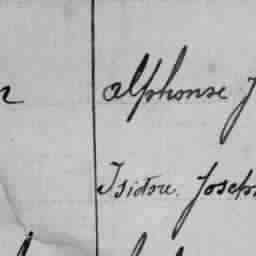 alphonse J
Isidore. Joseph